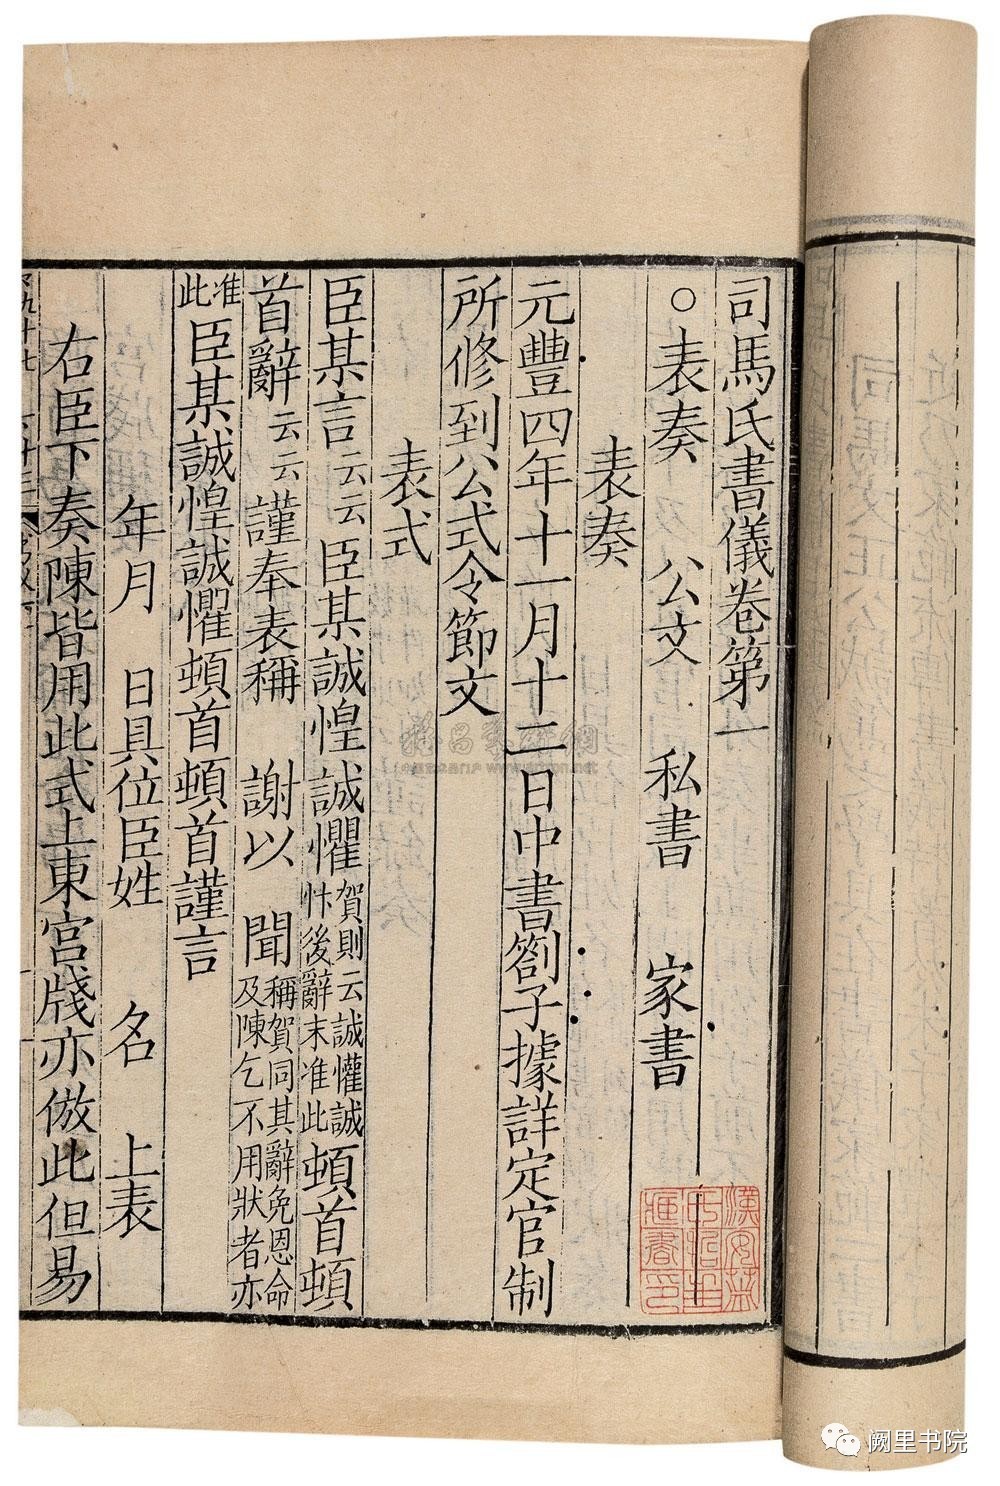 司馬氏書儀卷第一
○表奏 公文 私書 家書
表奏
元豐四年十一月十二日中書劄子據詳定官制
所修到公式令節文
表式
臣某言云云臣某誠惶誠懼賀則云誠懽誠忭後辭末准此頓首頓
首辭云云謹奉表稱 謝以 聞稱賀同其辭免恩命及陳乞不用狀者亦
准此臣某誠惶誠懼頓首頓首謹言
年月 日具位臣姓 名 上表
右臣下奏陳皆用此式上東宮牋亦倣此但易
阙里书院